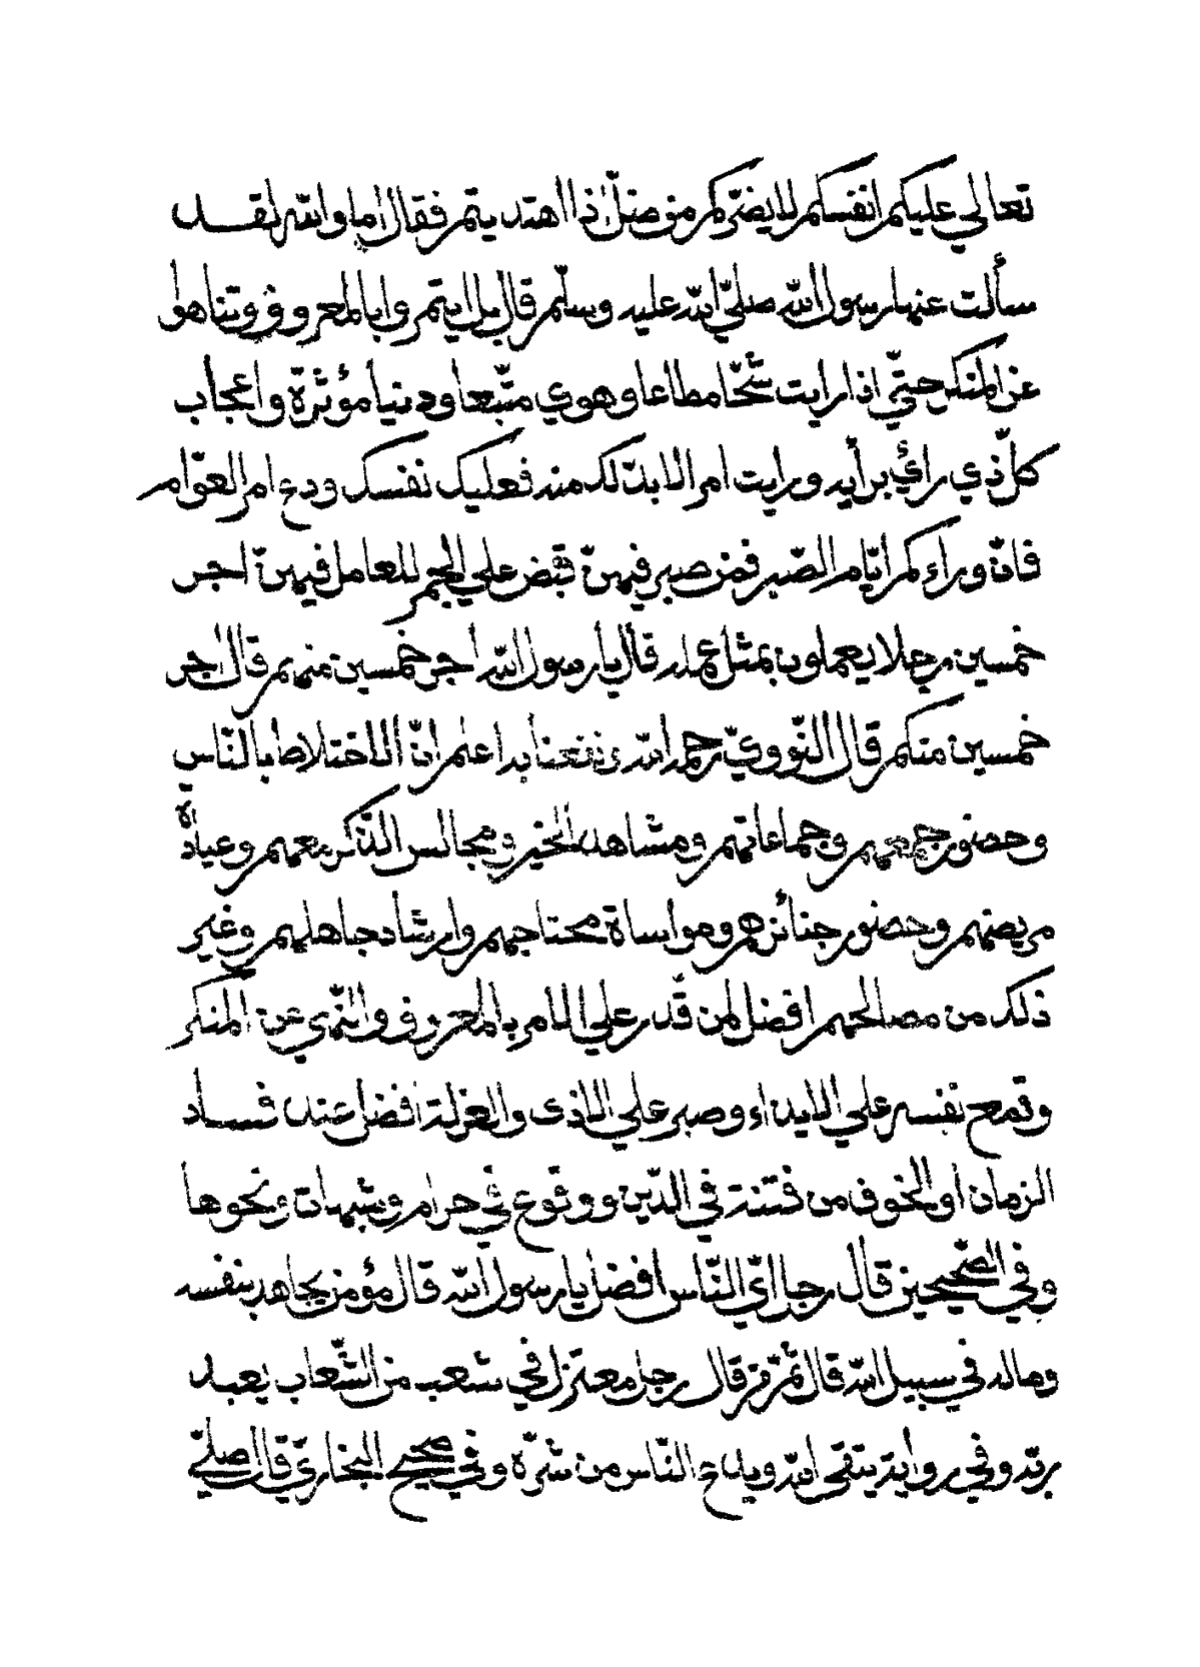 تعالي عليكم انفسكم لا يضرّكم من ضلّ إذا اهتديتم فقال اما والله لقد
سألت عنها رسول الله صلّي الله عليه وسلّم قال بل ايتمروا بالمعروف وتناهوا
عن المنكر حتّي اذا رايت شحّا مطاعا وهوي متّبعا ودنيا مؤثرة واعجاب
كلّ ذي رائي برأيه ورايت امرا لا بدّ لك منه فعليك نفسك ودع امر العوّام
فانّ وراءكم ايّام الصّبر فمن صبر فيهنّ قبض علي الجمر للعامل فيهنّ اجر
خمسين رجلا يعملون بمثل عمله قال يا رسول الله أجر خمسين منهم قال اجر
خمسين منكم قال النّوويّ رحمه الله ونفعنا به اعلم انّ الاختلاط بالنّاس
وحضور جمعهم وجماعاتهم ومشاهد الخير ومجالس الذّكر معهم وعيادة
مريضهم وحضور جنائزهم ومواساة محتاجهم وارشاد جاهلهم وغير
ذلك من مصالحهم افضل لمن قدر علي الامر بالمعروف والنّهي عن المنكر
وقمع نفسه علي الايذاء وصبر علي الاذى والعزلة افضل عند فساد
الزمان او الخوف من فتنة في الدّين ووقوع في حرام وشبهات ونحوها
وفي الصّحيحين قال رجل ايّ النّاس افضل يا رسول الله قال مؤمن يجاهد بنفسه
وماله في سبيل الله قال ثمّ من قال رجل معتزل في شعب من الشّعاب يعبد
ربّه وفي رواية يتقي الله ويدع النّاس من شرّه وفي صحيح البخاريّ قال صلّي